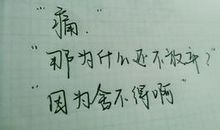 "痛."
"那为什么还不放弃?"
"因为舍不得啊"